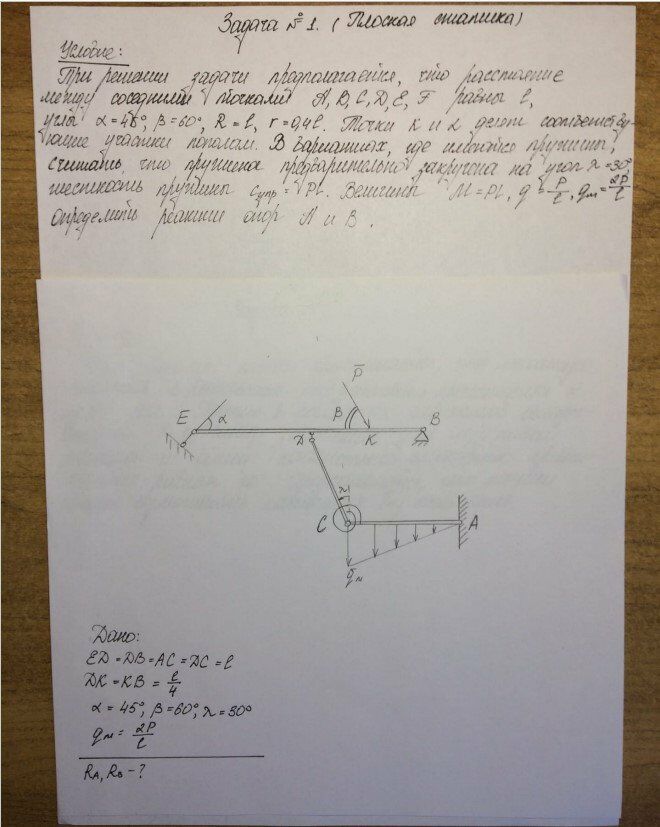 Задача № 1. (Плоская статика)
Условие:
При решении задачи предполагается, что расстояние
между соседними точками A, B, C, D, E, F равны l,
углы α = 45°, β = 60°, R = l, r = 0,4l. Точки K и L делят соответству-
ющие участки пополам. В вариантах, где имеются пружины,
считать, что пружина предварительно закручена на угол λ = 30°
жесткость пружины Cупр = Pl. Величины M = Pl, q = P/l, qм = 2P/l
Определить реакции опор A и B.
P̅
E α β B
D K
λ
C A
qм
Дано:
ED = DB = AC = DC = l
DK = KB = l/4
α = 45°, β = 60°, λ = 30°
qм = 2P/l
RA, RB - ?